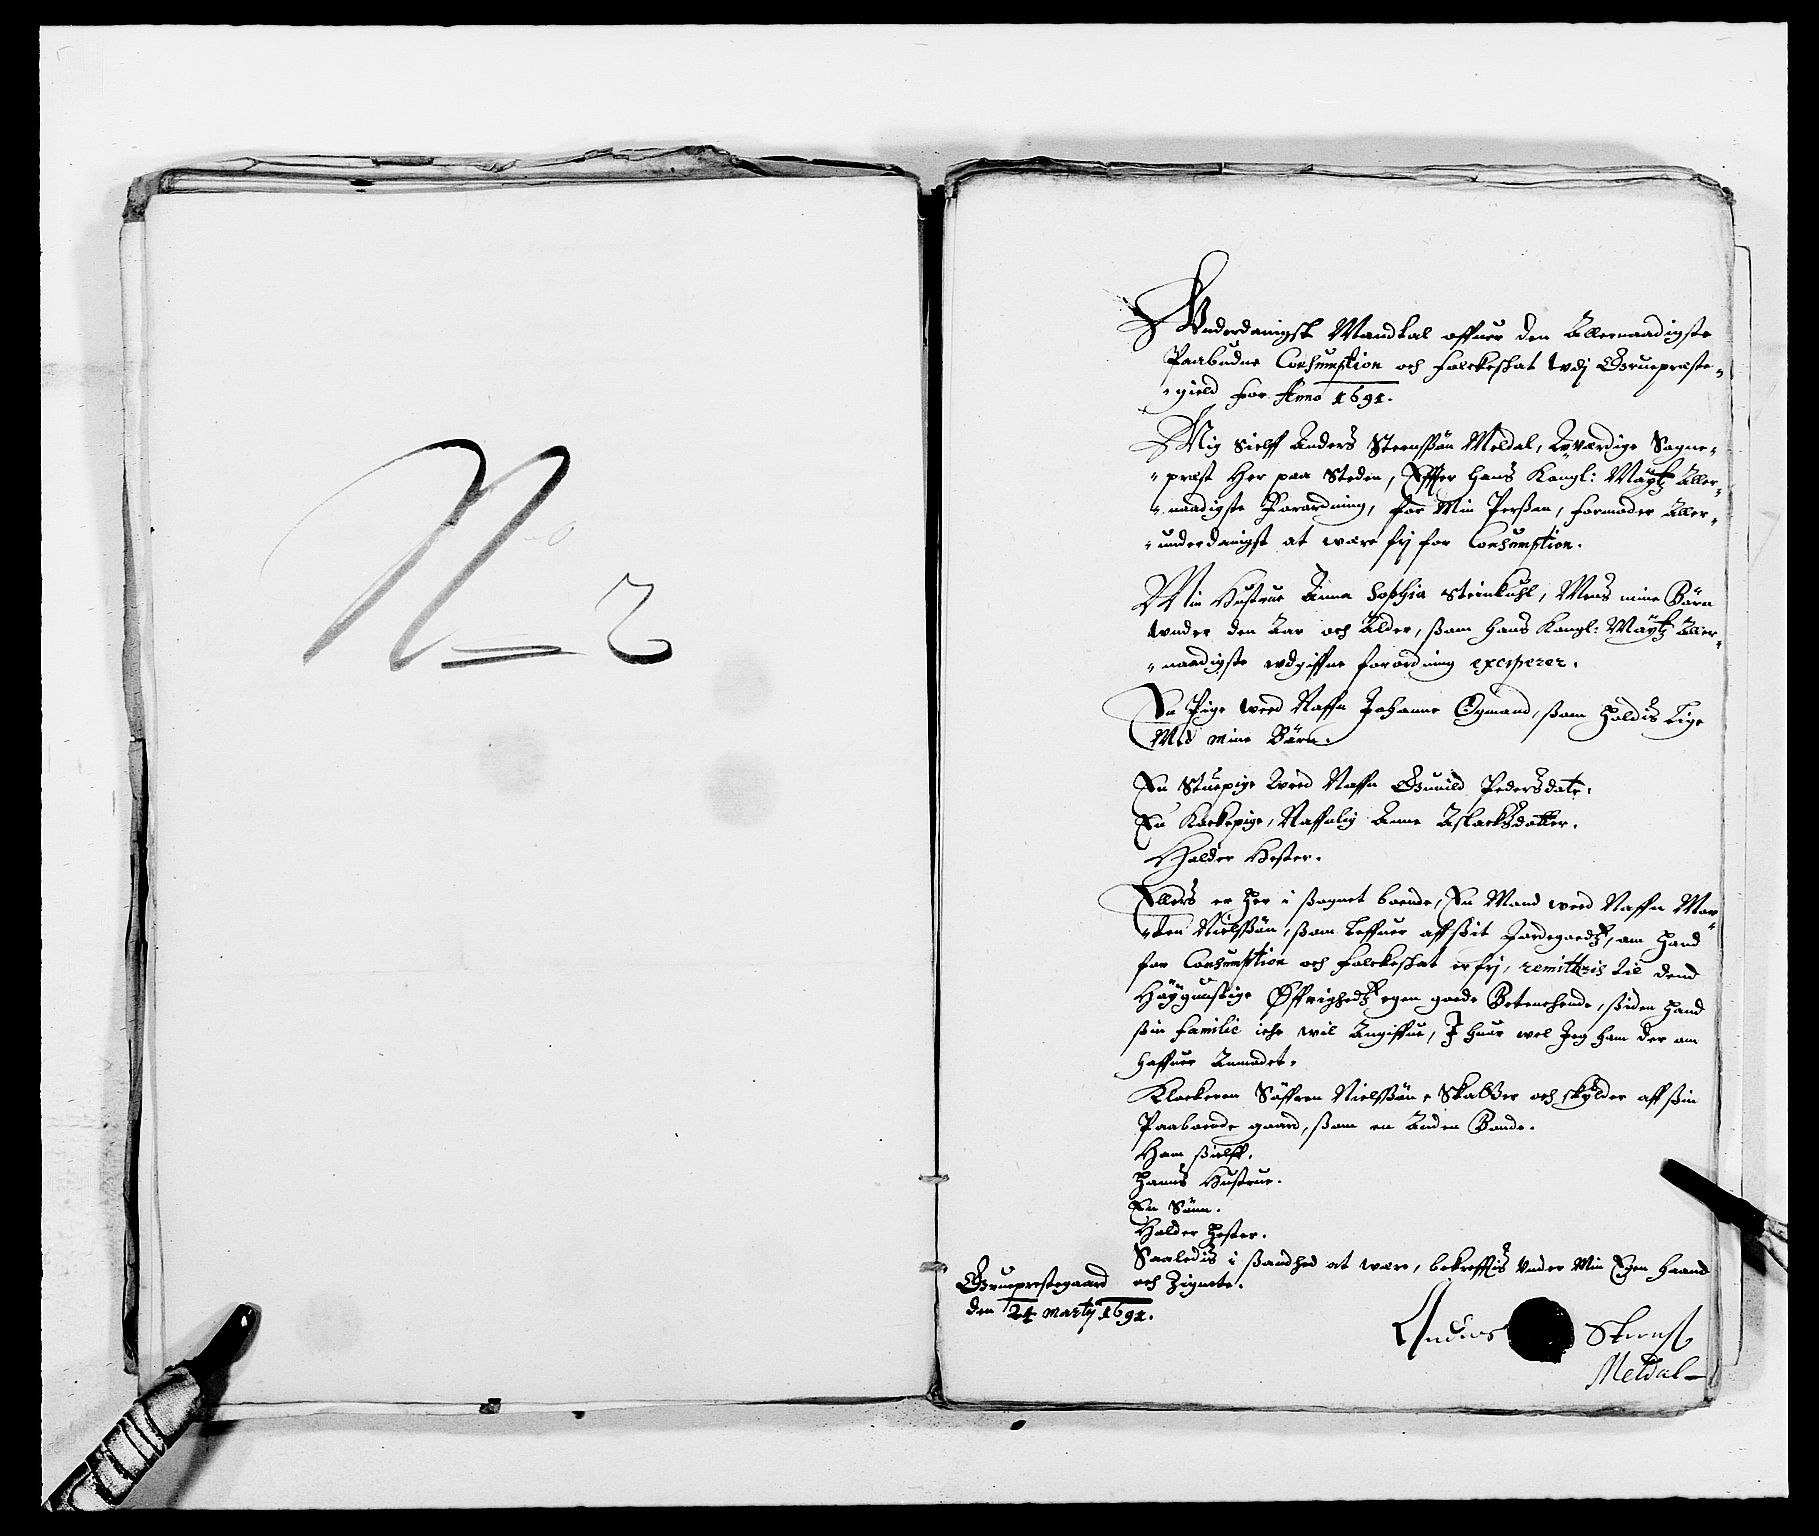 No 2
Vnderdanigst Mandtal offuer den Allernaadigste
Paabudne Consumption och folckeskat udj Gruepræste-
-gield for Anno 1691.
Mig sielff Anders Steenssön Meldal, Uværdige Sogne-
-præst Her paa Steden, Effter hans Kongl: Maytz Aller-
-naadigste Forordning, for Min Person, formoder Aller-
-underdanigst at være frj for Consumption.
Min Hustrue Anna Sophia Steinkuhl, Mens mine Börn
under den Aar och Alder, ssom Hans Kongl: Maytz Aller-
-naadigste udgiffne forordning exciperer.
En Pige weed Naffn Johanne Ogmand, ssom holdis Lige
Med mine Börn.
En Stuepige weed Naffn Gunild Pedersdater.
En Kockepige, Naffnlig Anne Aslacksdotter.
Holder Hester.
Ellers er her i ssognet boende, En Mand weed Naffn Mor-
-ten Nielssön, ssom Leffuer aff ssit Jordegodtz, om hand
for Consumption och folckeskat er frj, remitteris til dend
Höygunstige Öffrighedtz egen goede Betenchende, ssiden hand
ssin familie iche wil Angiffue, I huor wel Jeg ham der om
haffuer Anmodet.
Klockeren Söffren Nielssön, Skatter och skylder aff ssin
Paaboende gaard, ssom en Anden Bonde.
Ham ssielff.
Hannis Hustrue.
En Sönn.
Holder hester.
Saaledis i ssandhed at være, bekrefftis Under Min Egen Haand
och Zignete.
Grueprestegaard
den 24 Martij 1691.
Anders Steenss
Meldal